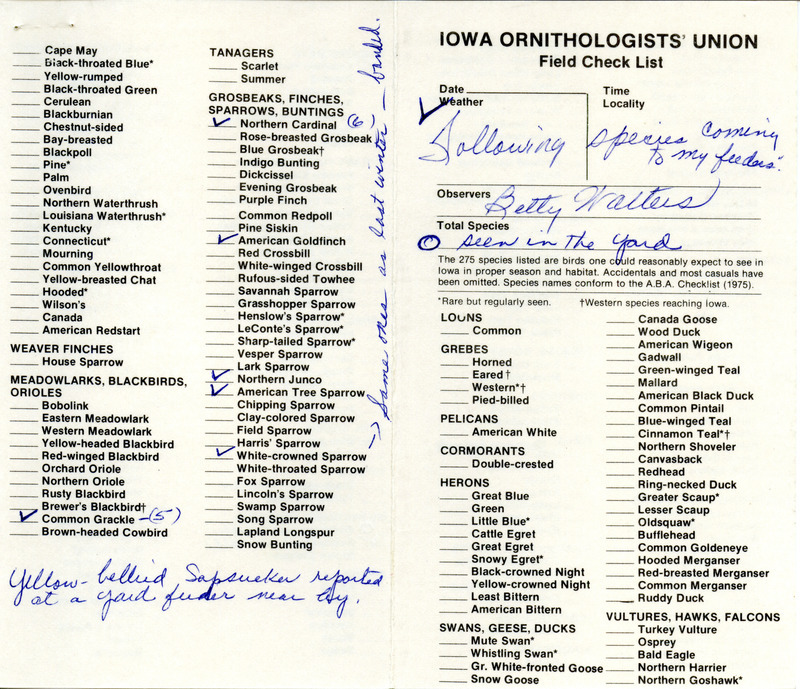 Cape May
Black-throated Blue*
Yellow-rumped
Black-throated Green
Cerulean
Blackburnian
Chestnut-sided
Bay-breasted
Blackpoll
Pine*
Palm
Ovenbird
Northern Waterthrush
Louisiana Waterthrush*
Kentucky
Connecticut*
Mourning
Common Yellowthroat
Yellow-breasted Chat
Hooded*
Wilson's
Canada
American Redstart
WEAVER FINCHES
House Sparrow
MEADOWLARKS, BLACKBIRDS,
ORIOLES
Bobolink
Eastern Meadowlark
Western Meadowlark
Yellow-headed Blackbird
Red-winged Blackbird
Orchard Oriole
Northern Oriole
Rusty Blackbird
Brewer's Blackbird†
✓ Common Grackle -(5)
Brown-headed Cowbird
Yellow-bellied Sapsucker reported
at a yard feeder near by.
TANAGERS
Scarlet
Summer
GROSBEAKS, FINCHES,
SPARROWS, BUNTINGS
✓ Northern Cardinal (6)
Rose-breasted Grosbeak
Blue Grosbeak†
Indigo Bunting
Dickcissel
Evening Grosbeak
Purple Finch
Common Redpoll
Pine Siskin
✓ American Goldfinch
Red Crossbill
White-winged Crossbill
Rufous-sided Towhee
Savannah Sparrow
Grasshopper Sparrow
Henslow's Sparrow*
LeConte's Sparrow*
Sharp-tailed Sparrow*
Vesper Sparrow
Lark Sparrow
✓ Northern Junco
✓ American Tree Sparrow
Chipping Sparrow
Clay-colored Sparrow
Field Sparrow
Harris' Sparrow
✓ White-crowned Sparrow
White-throated Sparrow
Fox Sparrow
Lincoln's Sparrow
Swamp Sparrow
Song Sparrow
Lapland Longspur
Snow Bunting
→ Same ones as last winter - banded.
IOWA ORNITHOLOGISTS' UNION
Field Check List
Date
Time
✓ Weather
Locality
Following species coming
to my feeders.
Observers Betty Walters
Total Species
seen in the yard
The 275 species listed are birds one could reasonably expect to see in
Iowa in proper season and habitat. Accidentals and most casuals have
been omitted. Species names conform to the A.B.A. Checklist (1975).
*Rare but regularly seen. †Western species reaching Iowa.
LOONS
Common
GREBES
Horned
Eared†
Western*†
Pied-billed
PELICANS
American White
CORMORANTS
Double-crested
HERONS
Great Blue
Green
Little Blue*
Cattle Egret
Great Egret
Snowy Egret*
Black-crowned Night
Yellow-crowned Night
Least Bittern
American Bittern
SWANS, GEESE, DUCKS
Mute Swan*
Whistling Swan*
Gr. White-fronted Goose
Snow Goose
Canada Goose
Wood Duck
American Wigeon
Gadwall
Green-winged Teal
Mallard
American Black Duck
Common Pintail
Blue-winged Teal
Cinnamon Teal*†
Northern Shoveler
Canvasback
Redhead
Ring-necked Duck
Greater Scaup*
Lesser Scaup
Oldsquaw*
Bufflehead
Common Goldeneye
Hooded Merganser
Red-breasted Merganser
Common Merganser
Ruddy Duck
VULTURES, HAWKS, FALCONS
Turkey Vulture
Osprey
Bald Eagle
Northern Harrier
Northern Goshawk*